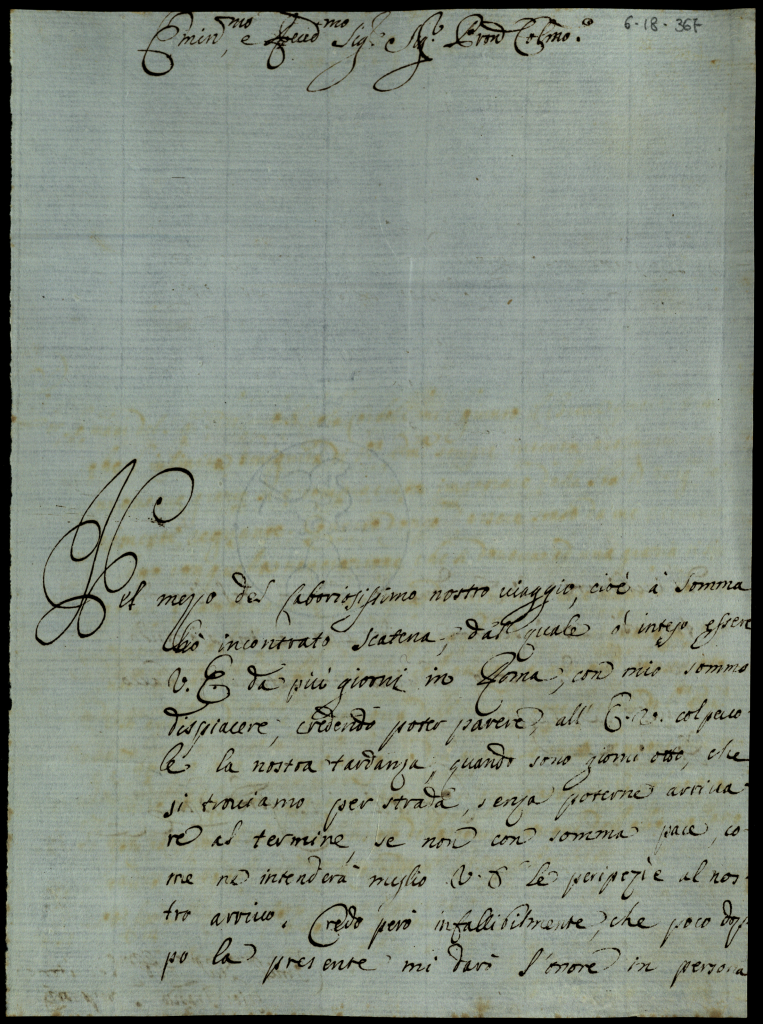 6-18-367
Emin.mo, e Rev.mo Sig.r Sig.r Pron Colmo.
Nel mezzo del laboriosissimo nostro viaggio, cioè à Somma
hò incontrato Scatena, dal quale ò inteso essere
V. E. da più giorni in Roma, con mio sommo
dispiacere, credendo poter parere, all' E. V. colpevo
le la nostra tardanza, quando sono giorni otto, che
si troviamo per strada, senza poterne arriva
re al termine, se non con somma pace, co-
me ne intenderà meglio V. E. le peripezie al nos-
tro arrivo. Credo però infallibilmente, che poco dop
po la presente mi darò l'onore in persona